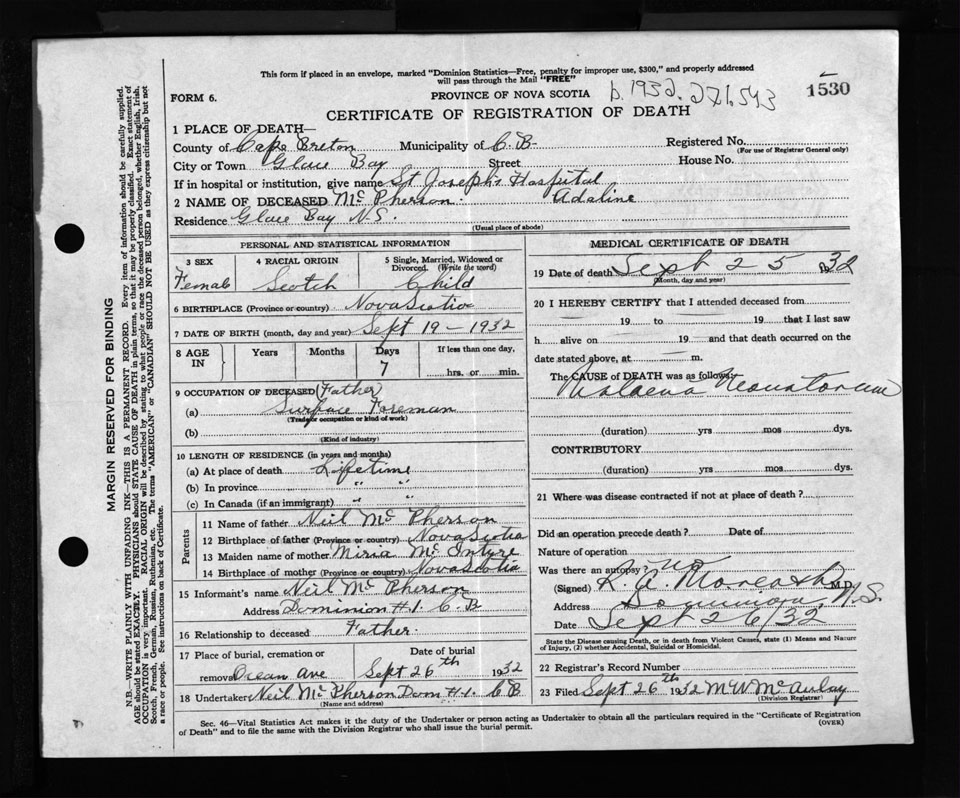 This form if placed in an envelope, marked "Dominion Statistics—Free, penalty for improper use, $300," and properly addressed
will pass through the Mail "FREE"
FORM 6.
PROVINCE OF NOVA SCOTIA
b. 1932. 271.543
1530
CERTIFICATE OF REGISTRATION OF DEATH
1 PLACE OF DEATH—
County of Cape Breton Municipality of C. B- Registered No.
(For use of Registrar General only)
City or Town Glace Bay Street House No.
If in hospital or institution, give name St Joseph's Hospital
2 NAME OF DECEASED McPherson. Adaline
Residence Glace Bay N.S.
(Usual place of abode)
PERSONAL AND STATISTICAL INFORMATION
3 SEX 4 RACIAL ORIGIN 5 Single, Married, Widowed or Divorced. (Write the word)
Female Scotch Child
6 BIRTHPLACE (Province or country) Nova Scotia
7 DATE OF BIRTH (month, day and year) Sept 19 - 1932
8 AGE IN Years Months Days If less than one day,
7 hrs. or min.
9 OCCUPATION OF DECEASED (Father)
(a) Surface Foreman
(Trade or occupation or kind of work)
(b)
(Kind of industry)
10 LENGTH OF RESIDENCE (in years and months)
(a) At place of death Lifetime
(b) In province " "
(c) In Canada (if an immigrant) " "
Parents
11 Name of father Neil McPherson
12 Birthplace of father (Province or country) Nova Scotia
13 Maiden name of mother Miria McIntyre
14 Birthplace of mother (Province or country) Nova Scotia
15 Informant's name Neil McPherson
Address Dominion #1. C B
16 Relationship to deceased Father.
17 Place of burial, cremation or removal Ocean Ave Date of burial Sept 26th 1932
18 Undertaker Neil McPherson Dom #1. C B
(Name and address)
MEDICAL CERTIFICATE OF DEATH
19 Date of death Sept 25 1932
(Month, day and year)
20 I HEREBY CERTIFY that I attended deceased from
19 to 19 that I last saw
h alive on 19 and that death occurred on the
date stated above, at m.
The CAUSE OF DEATH was as follows:
Malaena Neonatorum
(duration) yrs mos dys.
CONTRIBUTORY
(duration) yrs mos dys.
21 Where was disease contracted if not at place of death?
Did an operation precede death? Date of
Nature of operation
Was there an autopsy? no
(Signed) M.D.
Address Dominion, N.S.
Date Sept 26/32
State the Disease causing Death, or in death from Violent Causes, state (1) Means and Nature
of Injury, (2) whether Accidental, Suicidal or Homicidal.
22 Registrar's Record Number
23 Filed Sept 26th 1932 M W McAulay
(Division Registrar)
Sec. 46—Vital Statistics Act makes it the duty of the Undertaker or person acting as Undertaker to obtain all the particulars required in the "Certificate of Registration
of Death" and to file the same with the Division Registrar who shall issue the burial permit.
(OVER)
MARGIN RESERVED FOR BINDING
N.B.—WRITE PLAINLY WITH UNFADING INK—THIS IS A PERMANENT RECORD. Every item of information should be carefully supplied.
AGE should be stated EXACTLY. PHYSICIANS should STATE CAUSE OF DEATH in plain terms, so that it may be properly classified. Exact statement of
OCCUPATION is very important. RACIAL ORIGIN will be described by stating to what people or race the deceased person belonged, whether English, Irish,
Scotch, French, German, Russian, Ruthenian, etc. The terms "AMERICAN" or "CANADIAN" SHOULD NOT BE USED as they express citizenship but not
a race or people. See instructions on back of Certificate.